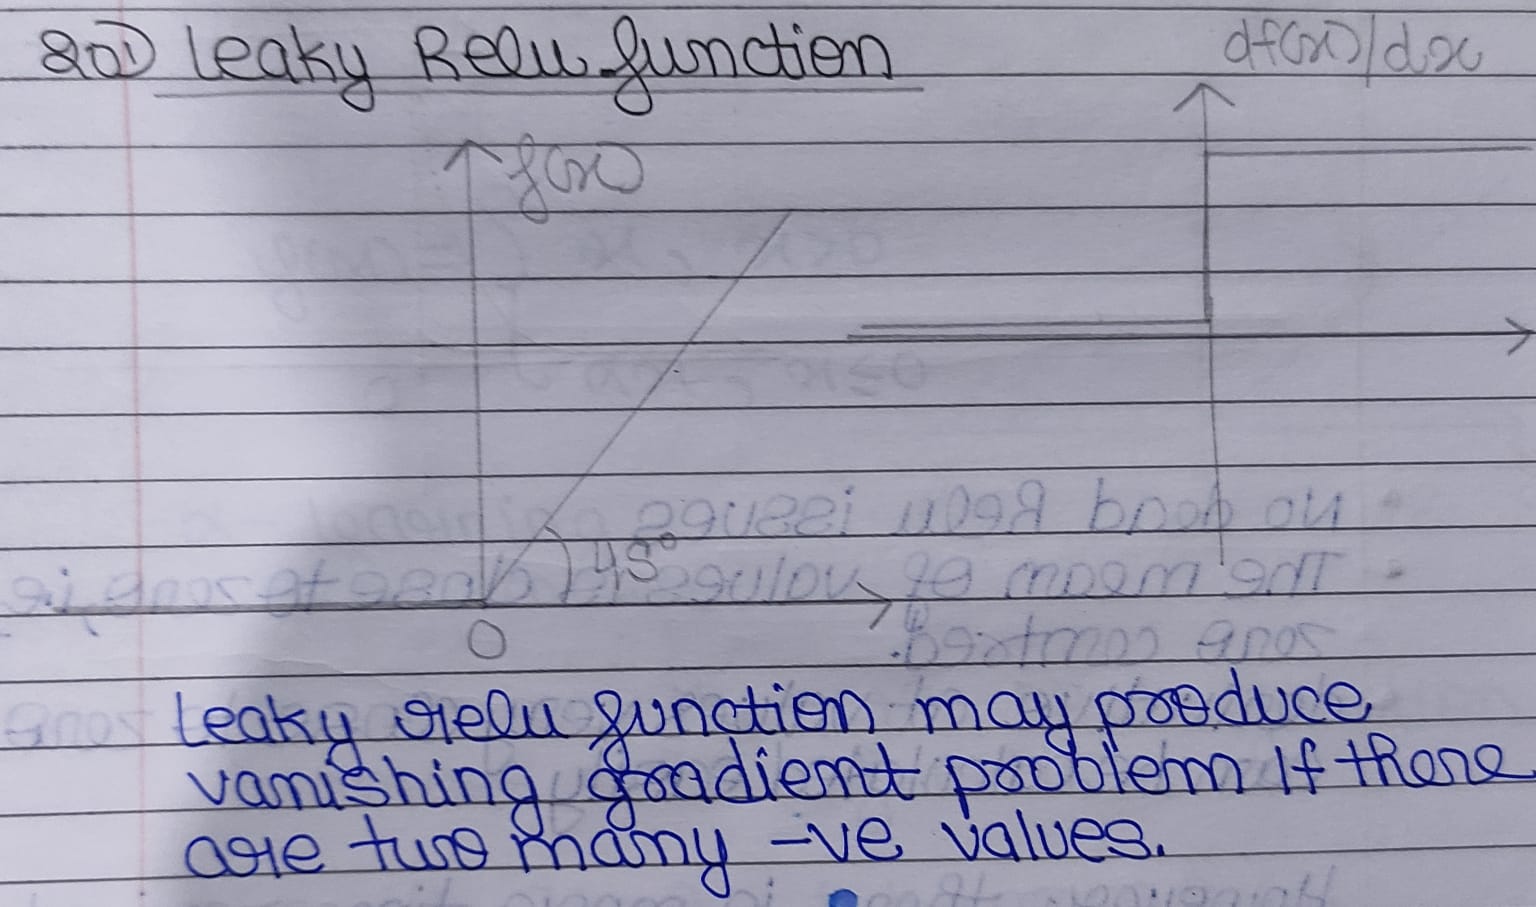 20) Leaky Relu function
df(x)/dx
f(x)
45°
0
Leaky relu function may produce
vanishing gradient problem If there
are two many -ve values.